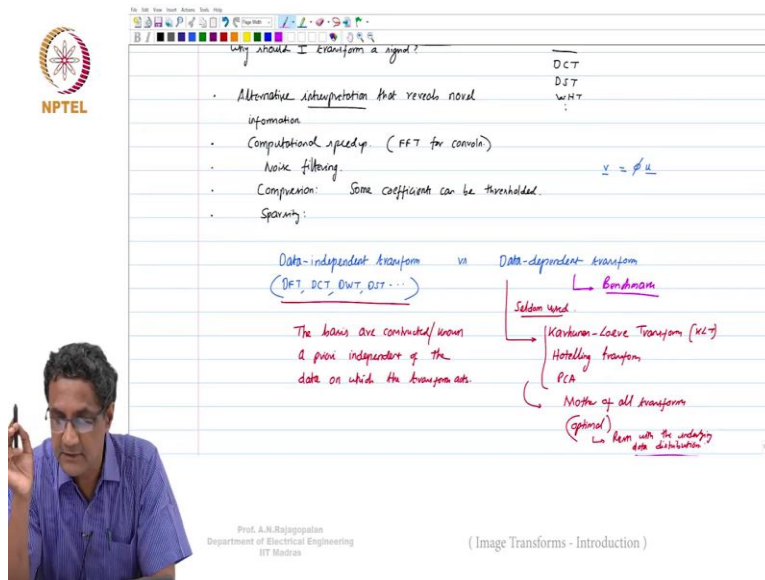 File Edit View Insert Actions Tools Help
Page Width
NPTEL
Why should I transform a signal?
DCT
DST
WHT
:
· Alternative interpretation that reveals novel
information
· Computational speedup. (FFT for convoln.)
· Noise filtering.
· Compression: Some coefficients can be thresholded.
· Sparsity:
v = φ u
Data-independent transform vs Data-dependent transform
(DFT, DCT, DWT, DST ...)
Benchmark
Seldom used.
The basis are constructed/known
a priori independent of the
data on which the transform acts.
Karhunen-Loeve Transform (KLT)
Hotelling transform
PCA
Mother of all transforms
(optimal)
with the underlying
data distribution
Prof. A.N.Rajagopalan
Department of Electrical Engineering
IIT Madras
( Image Transforms - Introduction )